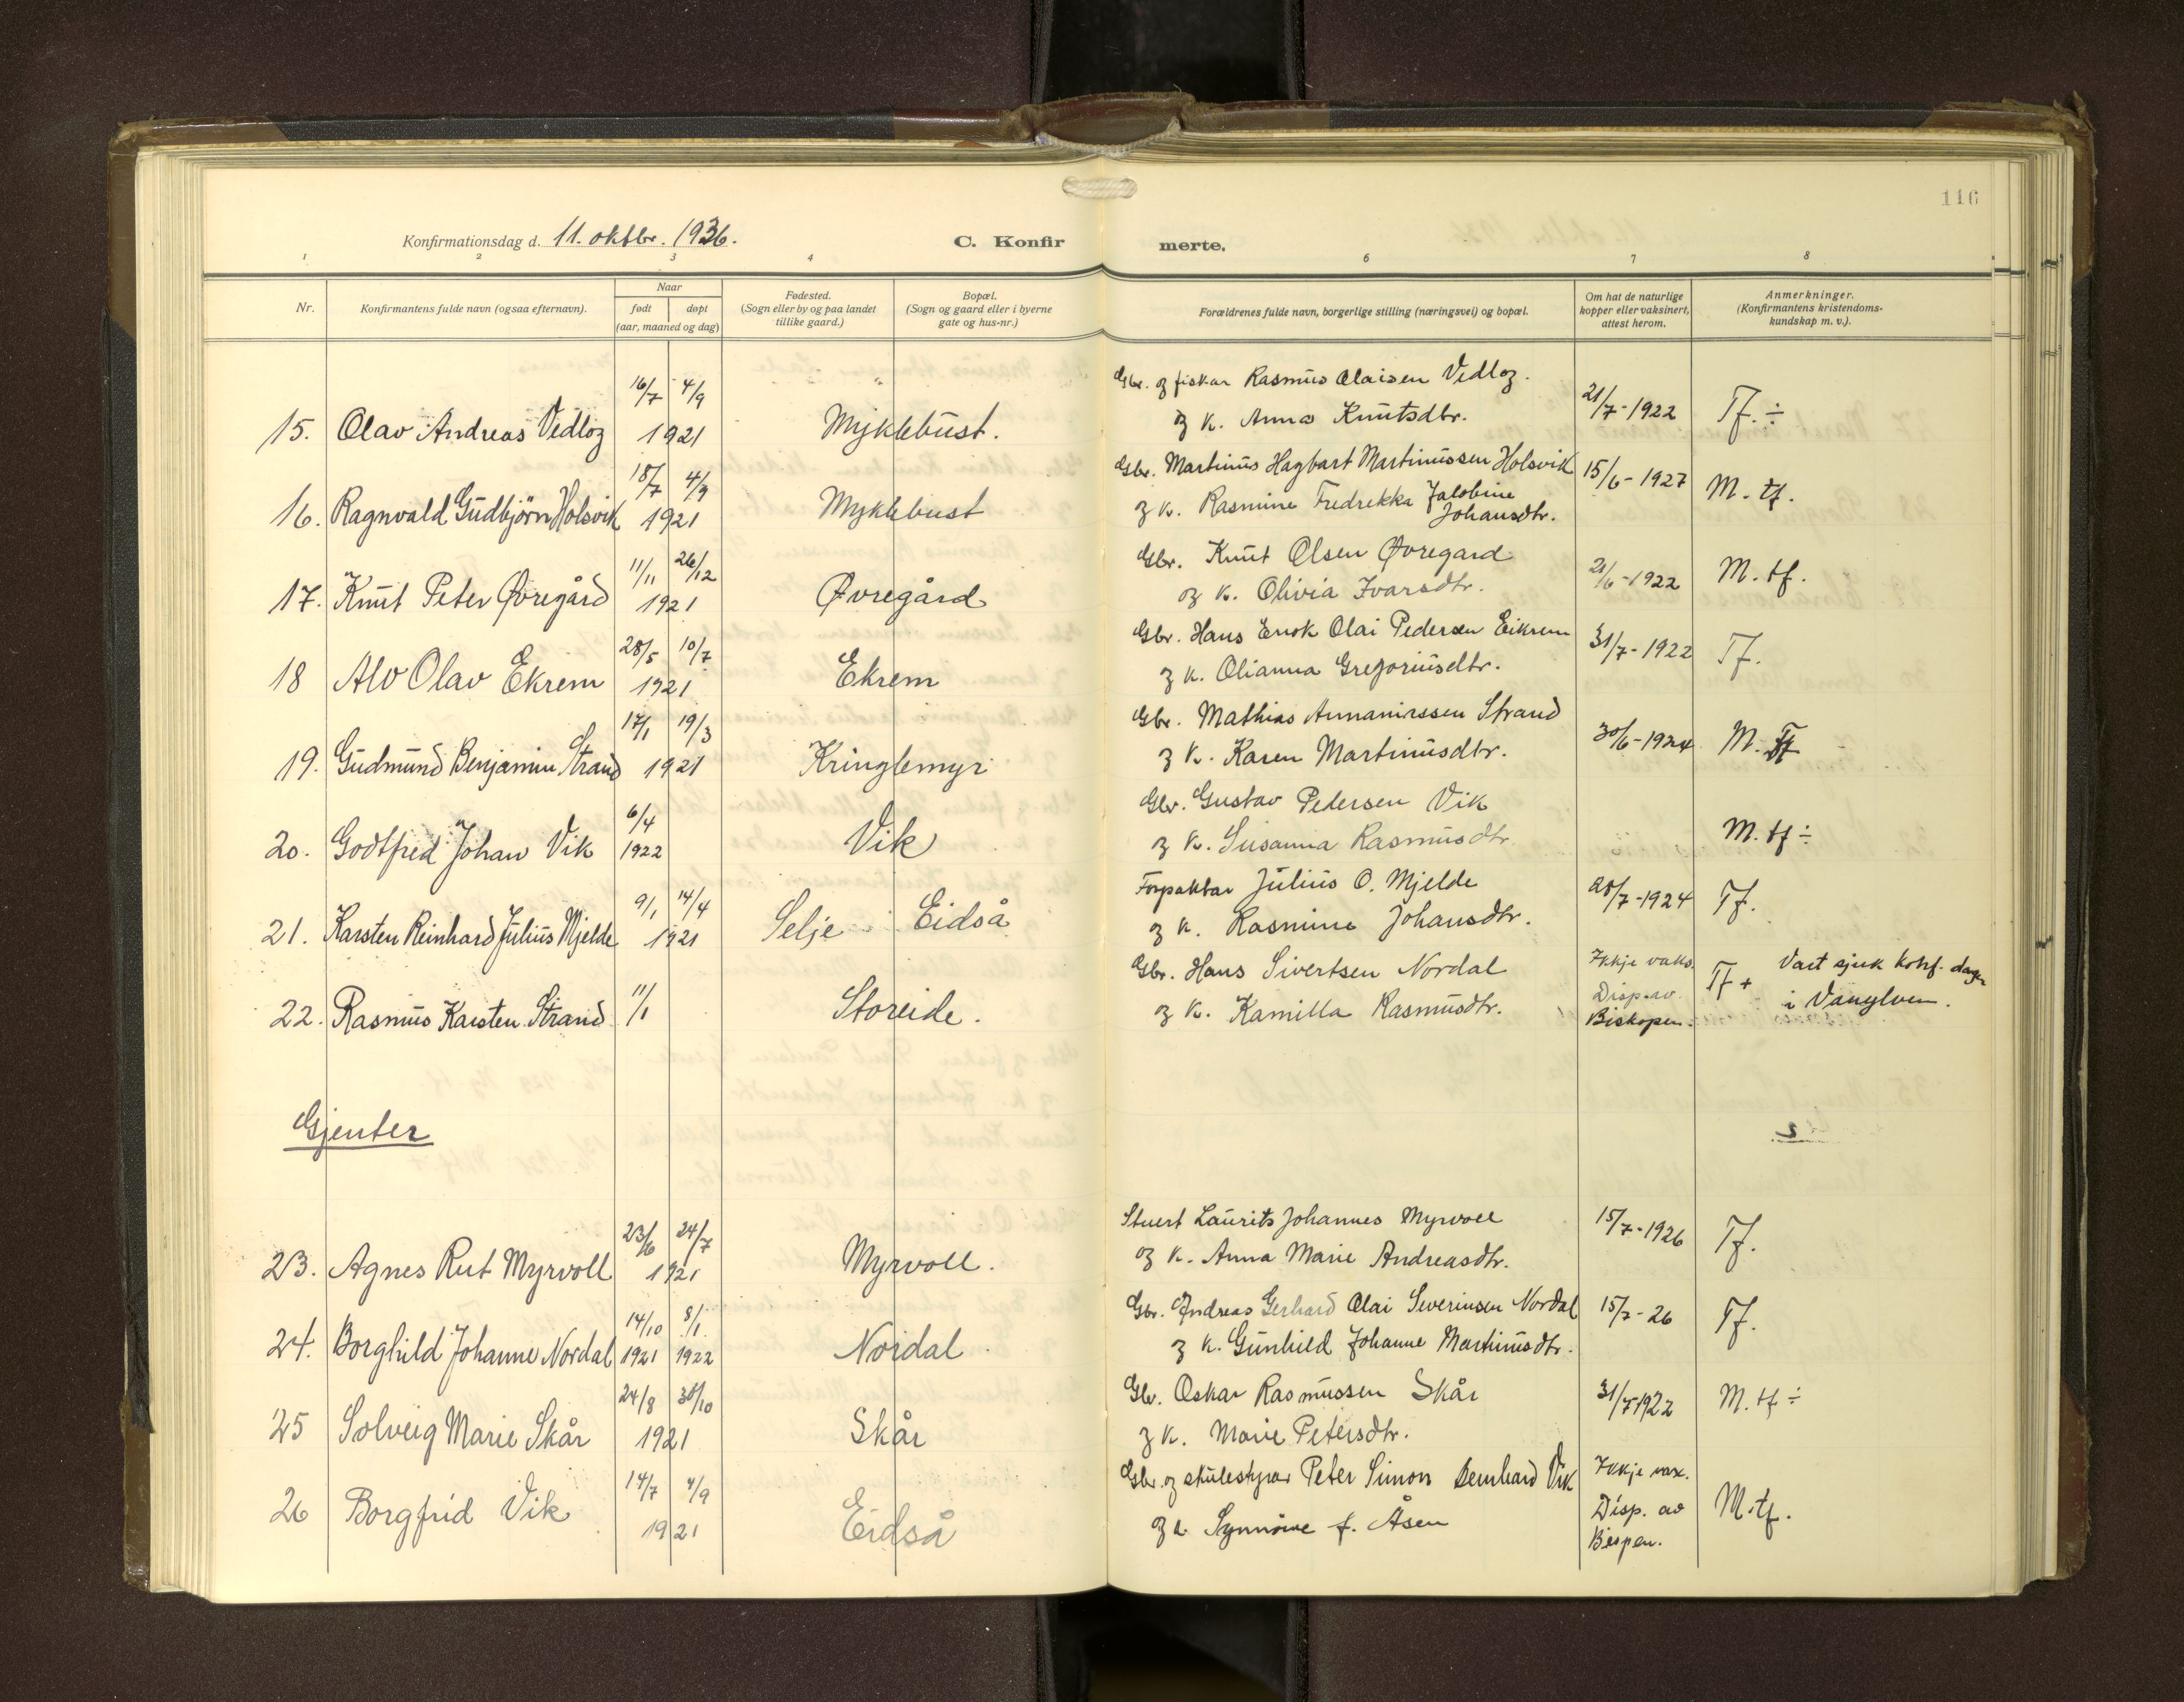 116
Konfirmationsdag d. 11. oktbr. 1936.
C. Konfirmerte.
1 2 3 4 6 7 8
Nr.
Konfirmantens fulde navn (ogsaa efternavn).
Naar
født døpt
(aar, maaned og dag)
Fødested.
(Sogn eller by og paa landet
tillike gaard.)
Bopæl.
(Sogn og gaard eller i byerne
gate og hus-nr.)
Forældrenes fulde navn, borgerlige stilling (næringsvei) og bopæl.
Om hat de naturlige
kopper eller vaksinert,
attest herom.
Anmerkninger.
(Konfirmantens kristendoms-
kundskap m. v.).
16/7 4/9 Gbr. og fiskar Rasmus Olaisen Vedlog.
15. Olav Andreas Vedlog 1921 Myklebust. og k. Anna Knutsdtr. 21/7-1922 Tf. ÷
18/7 4/9 Gbr. Martinus Hagbart Martinussen Holsvik 15/6-1927
16. Ragnvald Gudbjørn Holsvik 1921 Myklebust og k. Rasmine Fredrekka Jakobine Johansdtr. M. tf.
11/11 26/12 Gbr. Knut Olsen Øvregard
17. Knut Peter Øvregård 1921 Øvregård og k. Olivia Ivarsdtr. 21/6-1922 M. tf.
28/5 10/7 Gbr. Hans Enok Olai Pedersen Eikrem
18 Alv Olav Ekrem 1921 Ekrem og k. Olianna Gregoriusdtr. 31/7-1922 Tf.
17/1 19/3 Gbr. Mathias Annanissen Strand
19. Gudmund Benjamin Strand 1921 Kringlemyr og k. Karen Martinusdtr. 30/6-1924 M. Tf
6/4 Gbr. Gustav Pedersen Vik
20. Godtfred Johan Vik 1922 Vik og k. Susanna Rasmusdtr. M. tf ÷
9/1 14/4 Forpaktar Julius O. Mjelde
21. Karsten Reinhard Julius Mjelde 1921 Selje Eidså og k. Rasmine Johansdtr. 28/7-1924 Tf.
11/1 Gbr. Hans Sivertsen Nordal Ikkje vaks. Vart sjuk konf. dagen
22. Rasmus Karsten Strand Storeide. og k. Kamilla Rasmusdtr. Disp. av Biskopen. Tf + i Vanylven.
Gjenter
23/6 24/7 Stuert Laurits Johannes Myrvoll
23. Agnes Rut Myrvoll 1921 Myrvoll. og k. Anna Marie Andreasdtr. 15/7-1926 Tf.
14/10 8/1 Gbr. Andreas Gerhard Olai Severinsen Nordal
24. Borghild Johanne Nordal 1921 1922 Nordal og k. Gunhild Johanne Martinusdtr. 15/7-26 Tf.
24/8 30/10 Gbr. Oskar Rasmussen Skår
25 Solveig Marie Skår 1921 Skår og k. Marie Petersdtr. 31/7-1922 M. tf ÷
14/7 4/9 Gbr. og skulestyrar Peter Simon Bernhard Vik Ikkje vax.
26 Borgfrid Vik 1921 Eidså og k. Synnöve f. Åsen Disp. av Bispen. M. tf.